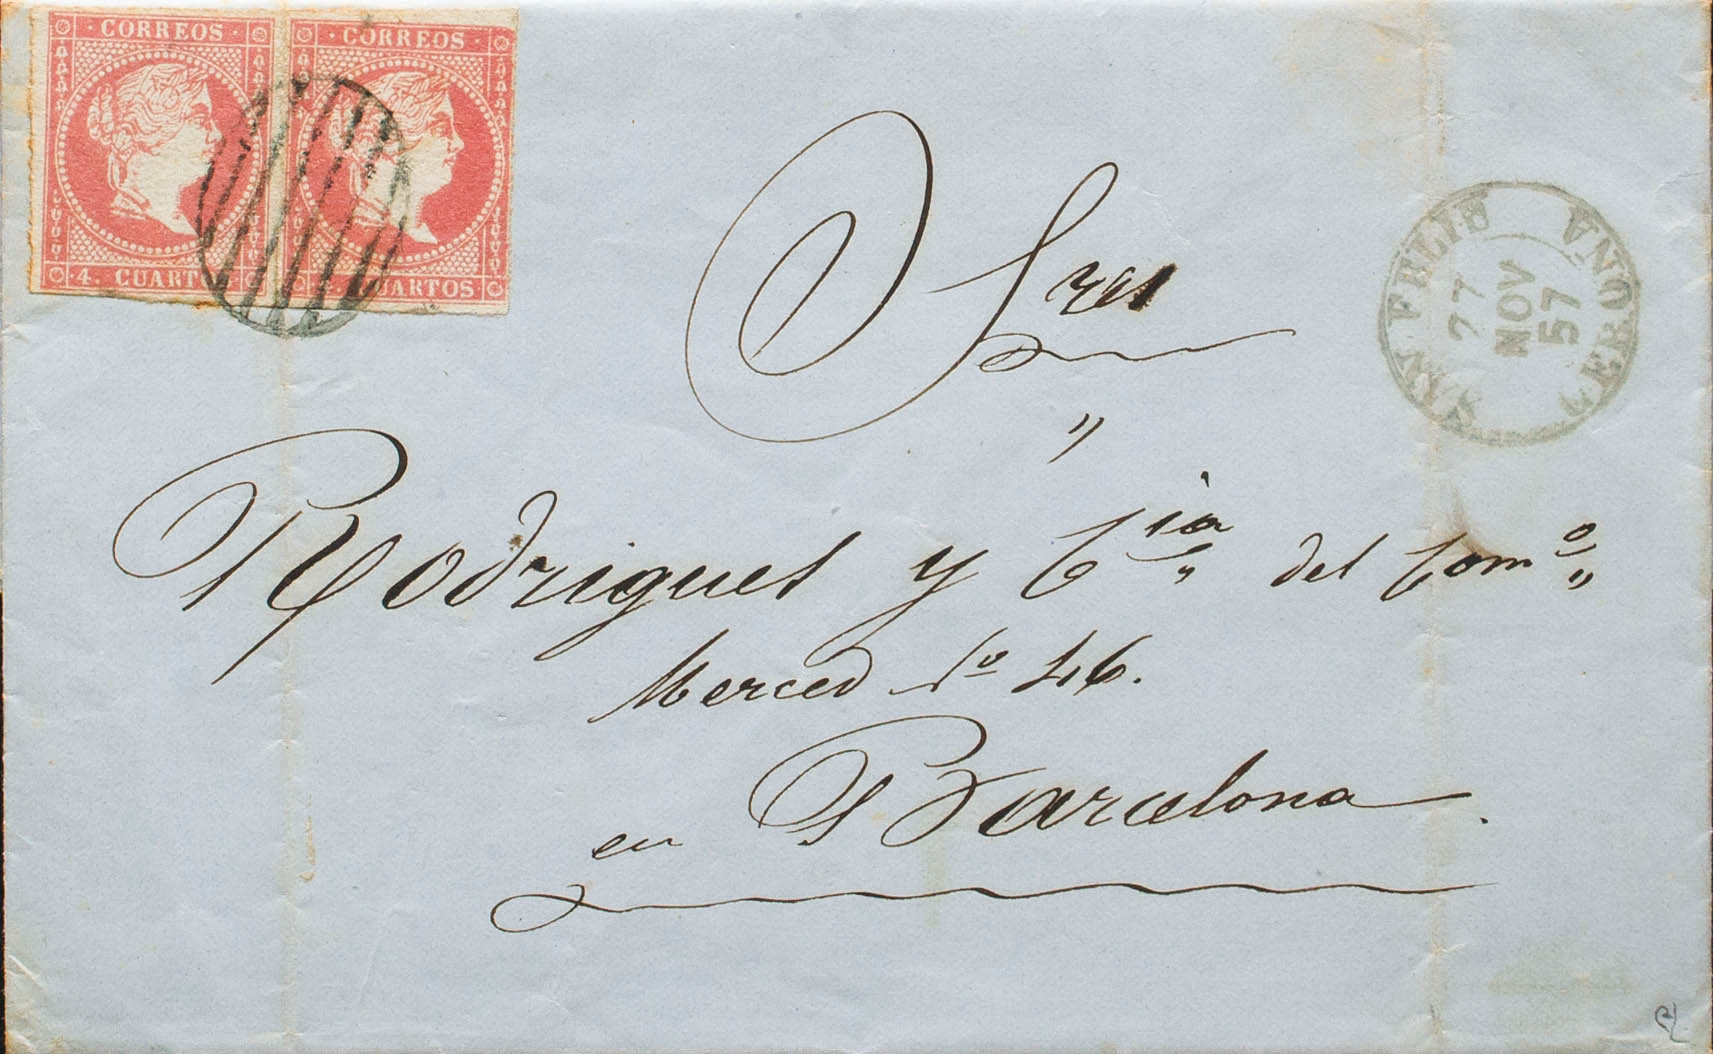 CORREOS CORREOS
4. CUARTOS CUARTOS
SAN FELIU GERONA
27
NOV
57
Sres
"
Rodriguez y Cia del Comº
Merced nº 46.
en Barcelona.